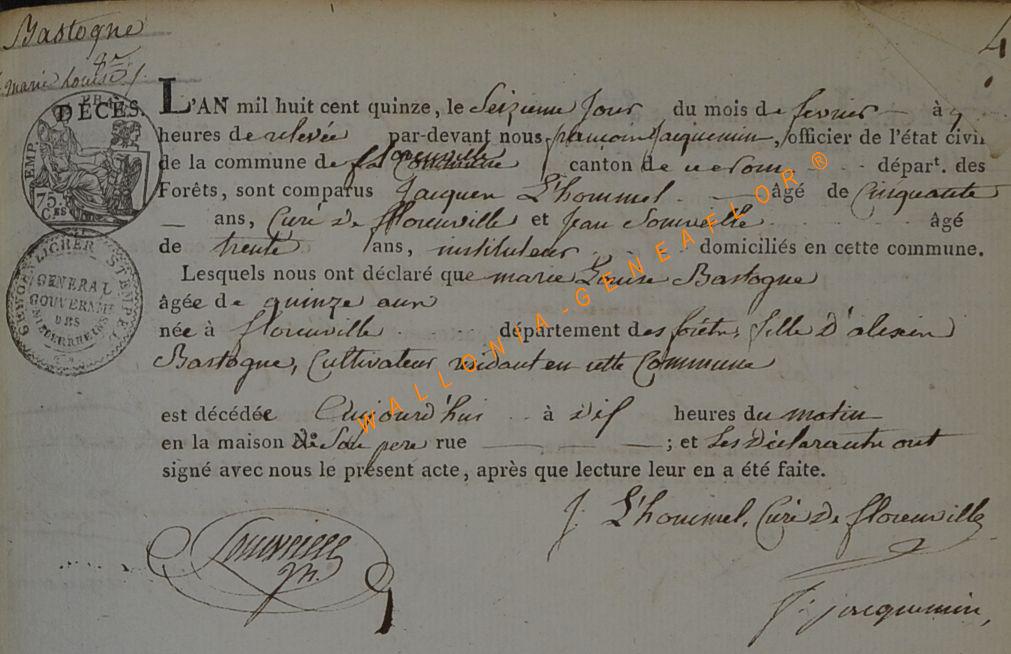 Bastogne
marie Louise
4
DÉCÈS.
75.
C.ES
GENERAL
GOUVERNMT
DES
NIEDERRHEINS
L'AN mil huit cent quinze, le Seizieme Jour du mois de fevrier à
heures de relevée par-devant nous, francois Jacquemin, officier de l'état civil
de la commune de florenville canton de dépar.t des
Forêts, sont comparus Jacques L'hommel âgé de Cinquante
ans, Curé de florenville et Jean âgé
de trente ans, instituteur domiciliés en cette commune.
Lesquels nous ont déclaré que marie Louise Bastogne
âgée de quinze ans
née à florenville département des forêts, fille D'alexis
Bastogne, Cultivateur residant en cette Commune
est décédée Aujourd'hui à dix heures du matin
en la maison de Son pere rue ; et Les déclarants ont
signé avec nous le présent acte, après que lecture leur en a été faite.
J. L'hommel, Curé de florenville
f: jacquemin,
WALLONIA-GENEAFLOR®